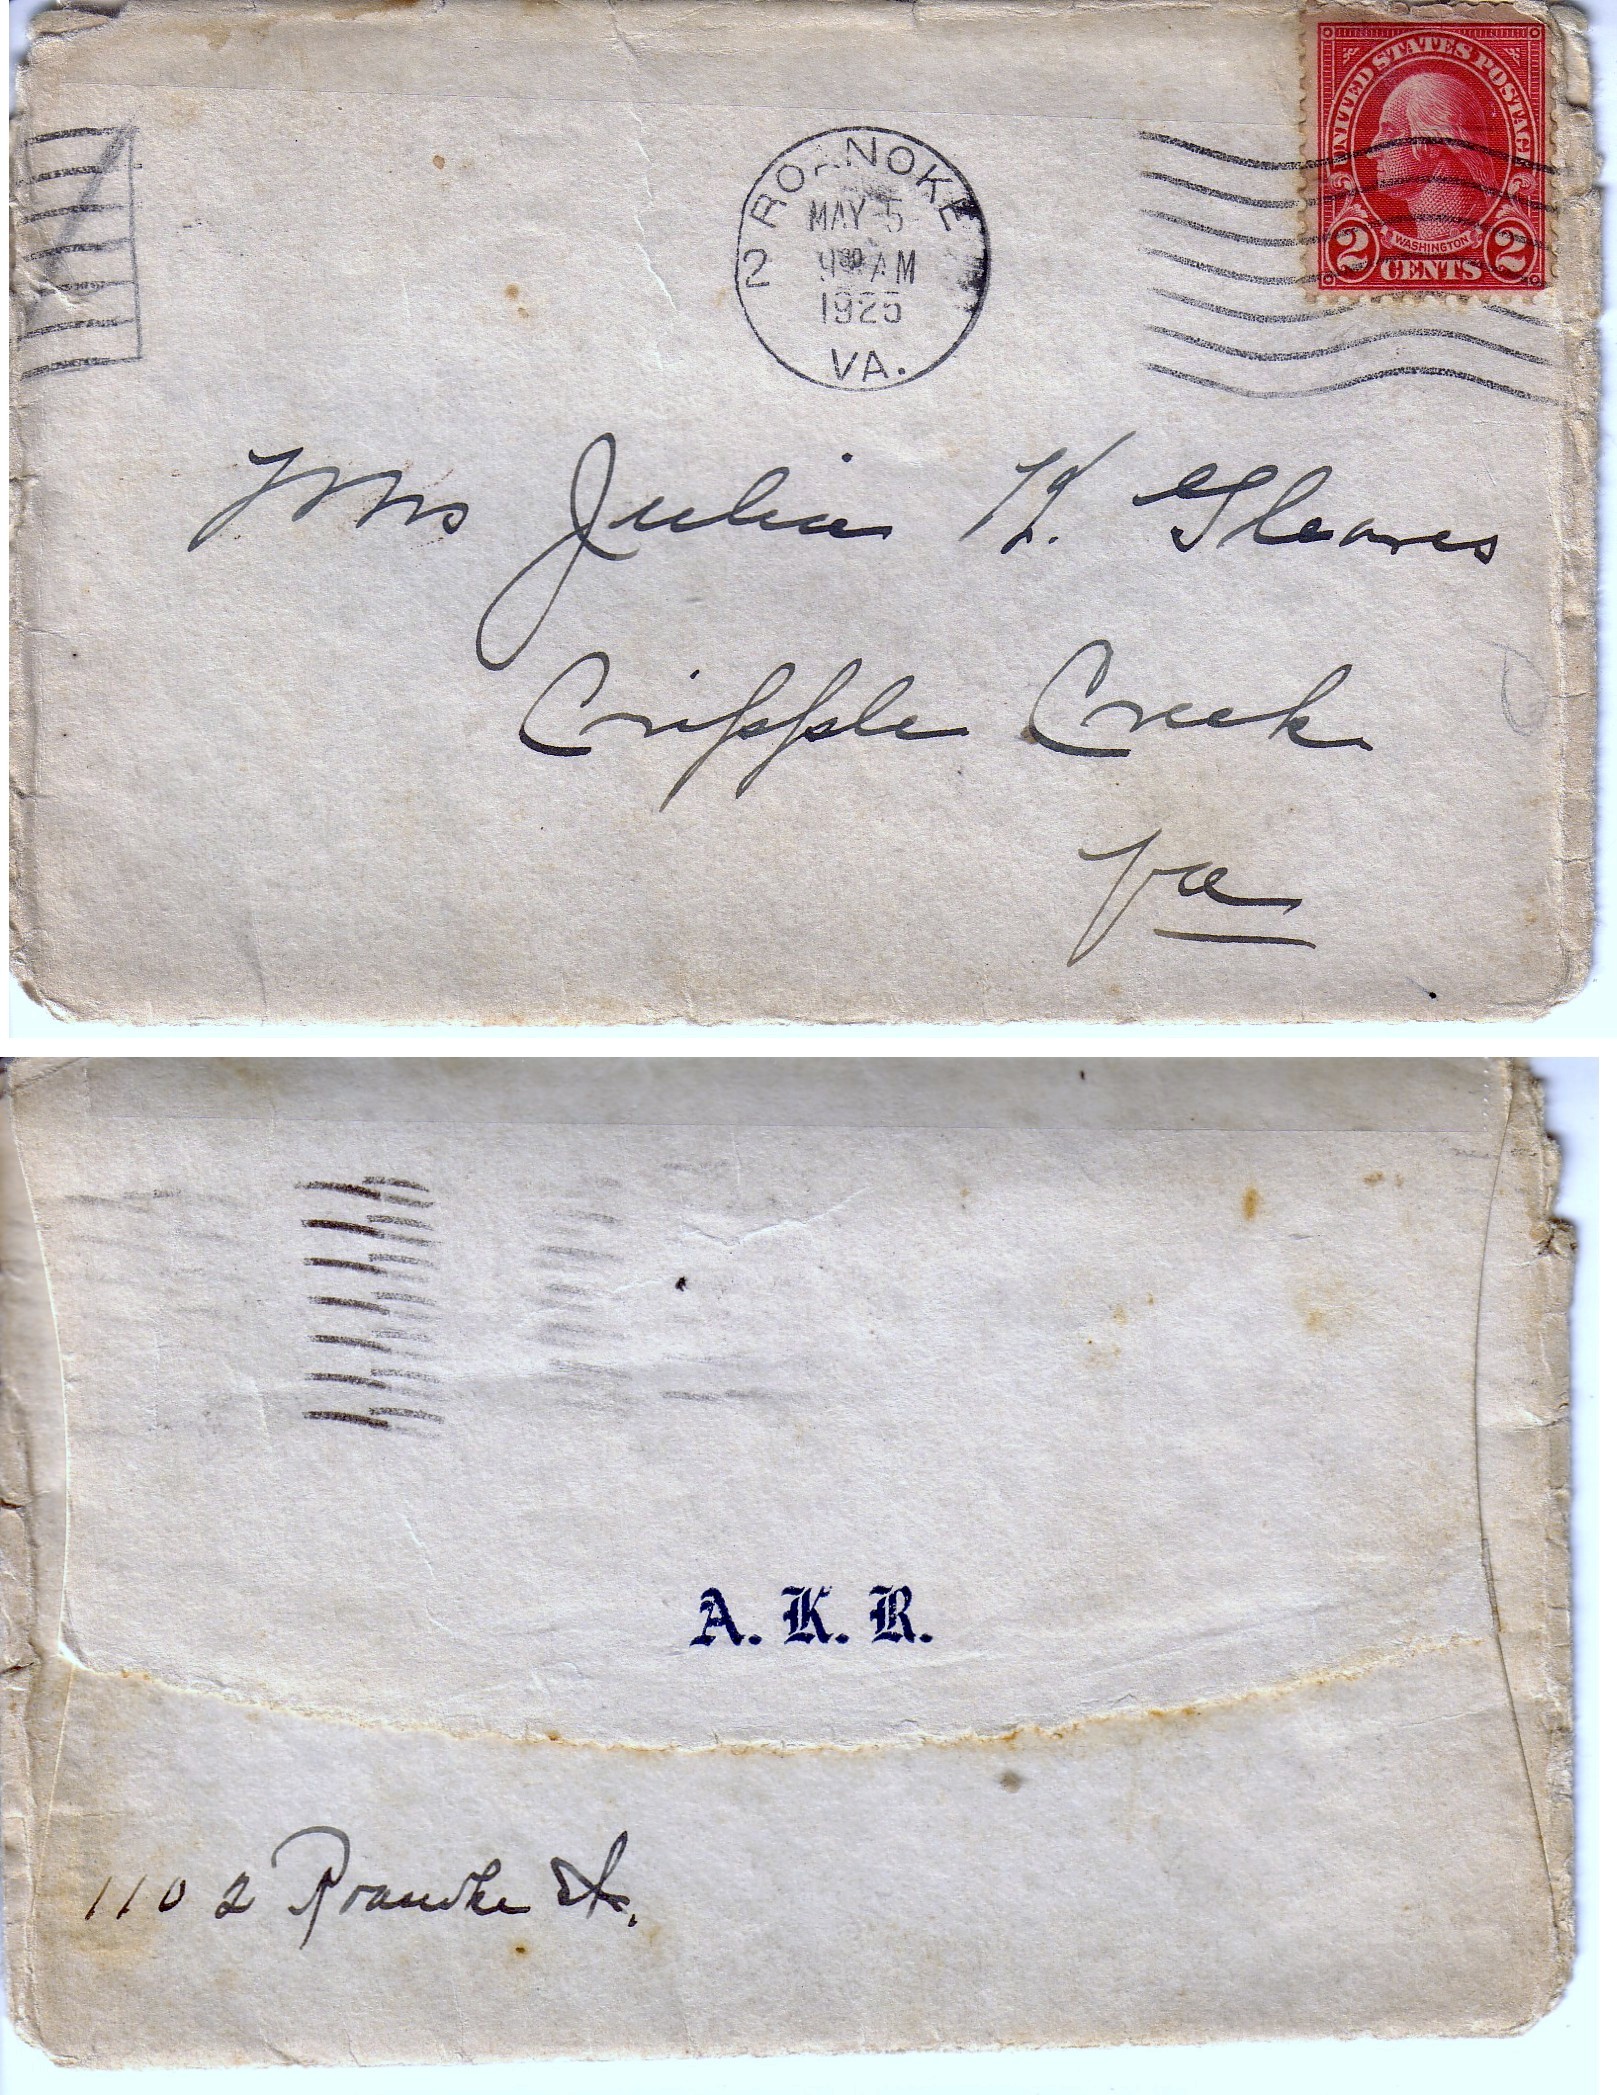 UNITED STATES POSTAGE
WASHINGTON
2 CENTS 2
2 ROANOKE
MAY 5
AM
1925
VA.
Mrs Julia H. Gleaves
Cripple Creek
Va
A. K. R.
1102 Roanoke St.